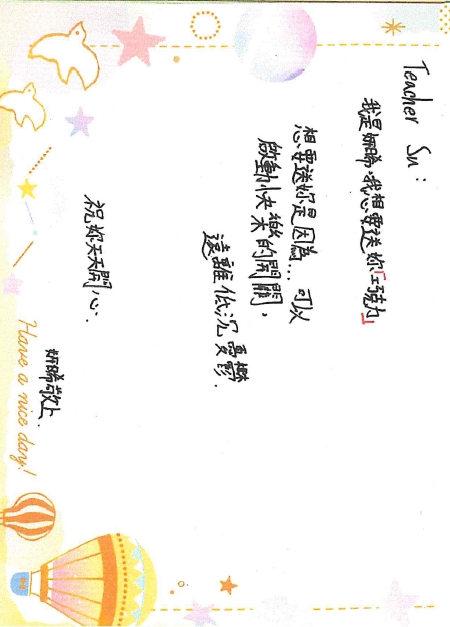 Teacher Su:
我是姍晞,我想要送妳「巧克力」
想要送妳是因為...可以
啟動快樂的開關,
遠離低沉憂鬱.
祝妳天天開心.
姍晞敬上.
Have a nice day!